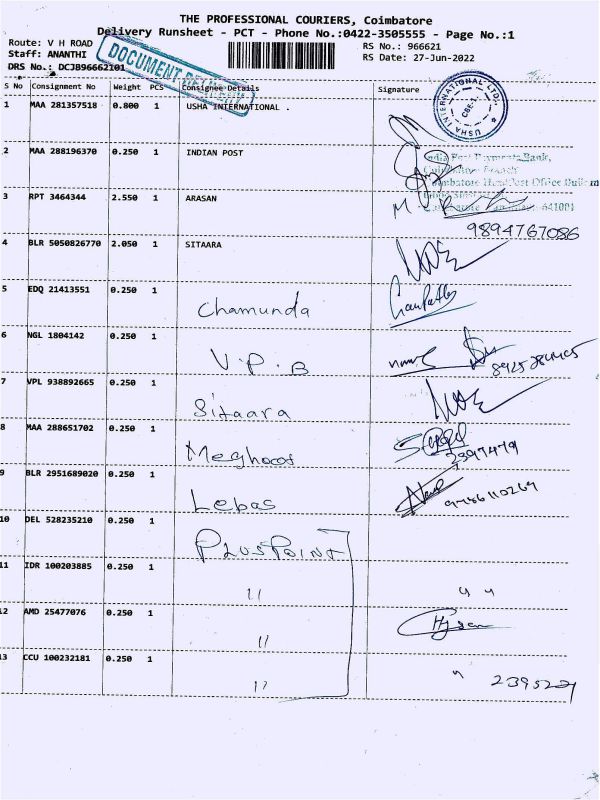 THE PROFESSIONAL COURIERS, Coimbatore
Delivery Runsheet - PCT - Phone No.:0422-3505555 - Page No.:1
Route: V H ROAD
RS No.: 966621
Staff: ANANTHI
RS Date: 27-Jun-2022
DRS No.: DCJB96662101
DOCUMENT
S No Consignment No Weight PCS Consignee Details Signature
1 MAA 281357518 0.800 1 USHA INTERNATIONAL .
USHA INTERNATIONAL LTD.
CBE-1
2 MAA 288196370 0.250 1 INDIAN POST
India Post Payments Bank,
Coimbatore Branch
Coimbatore Head Post Office
641001
3 RPT 3464344 2.550 1 ARASAN
9894767086
4 BLR 5050826770 2.050 1 SITAARA
5 EDQ 21413551 0.250 1 Chamunda
6 NGL 1804142 0.250 1 V.P.B
7 VPL 938892665 0.250 1 Sitaara
8 MAA 288651702 0.250 1 Meghdoot
2397479
9 BLR 2951689020 0.250 1 Lebas
9786110269
10 DEL 528235210 0.250 1 PLUSPOINT
11 IDR 100203885 0.250 1 " "
12 AMD 25477076 0.250 1 "
13 CCU 100232181 0.250 1 " "